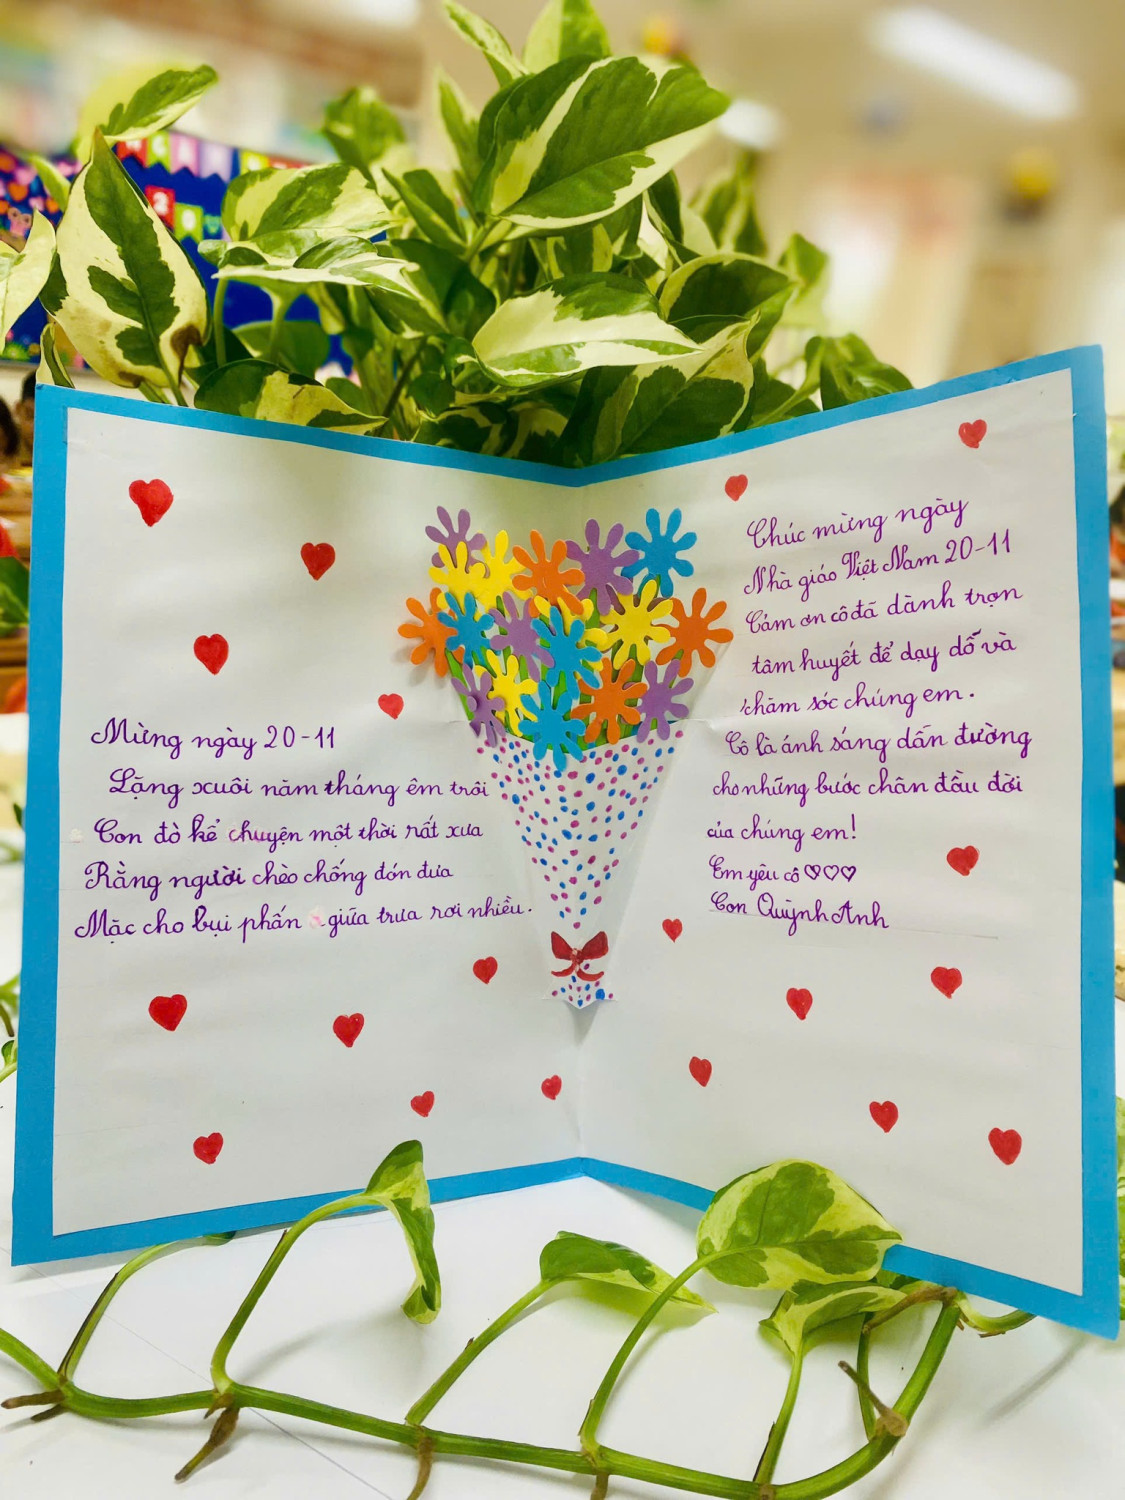 Mừng ngày 20-11
Lặng xuôi năm tháng êm trôi
Con đò kể chuyện một thời rất xưa
Rằng người chèo chống đón đưa
Mặc cho bụi phấn giữa trưa rơi nhiều.
Chúc mừng ngày
Nhà giáo Việt Nam 20-11
Cảm ơn cô đã dành trọn
tâm huyết để dạy dỗ và
chăm sóc chúng em.
Cô là ánh sáng dẫn đường
cho những bước chân đầu đời
của chúng em!
Em yêu cô ♡♡♡
Con Quỳnh Anh